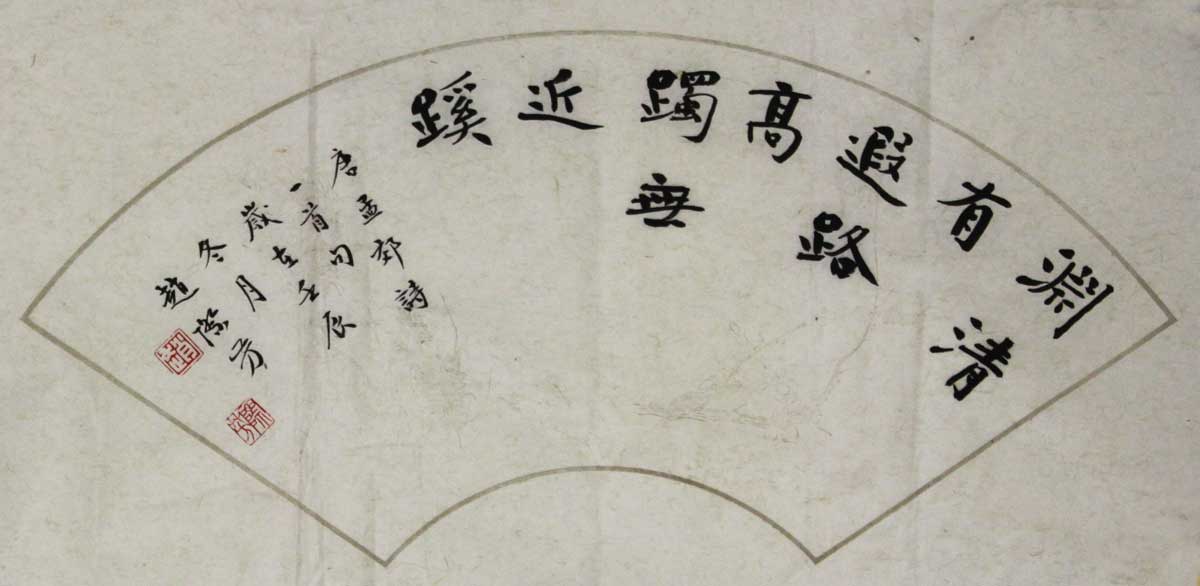 淵清
有
遐路
高
躅無
近
蹊
唐孟郊詩
一首句
歲在壬辰
冬月
趙